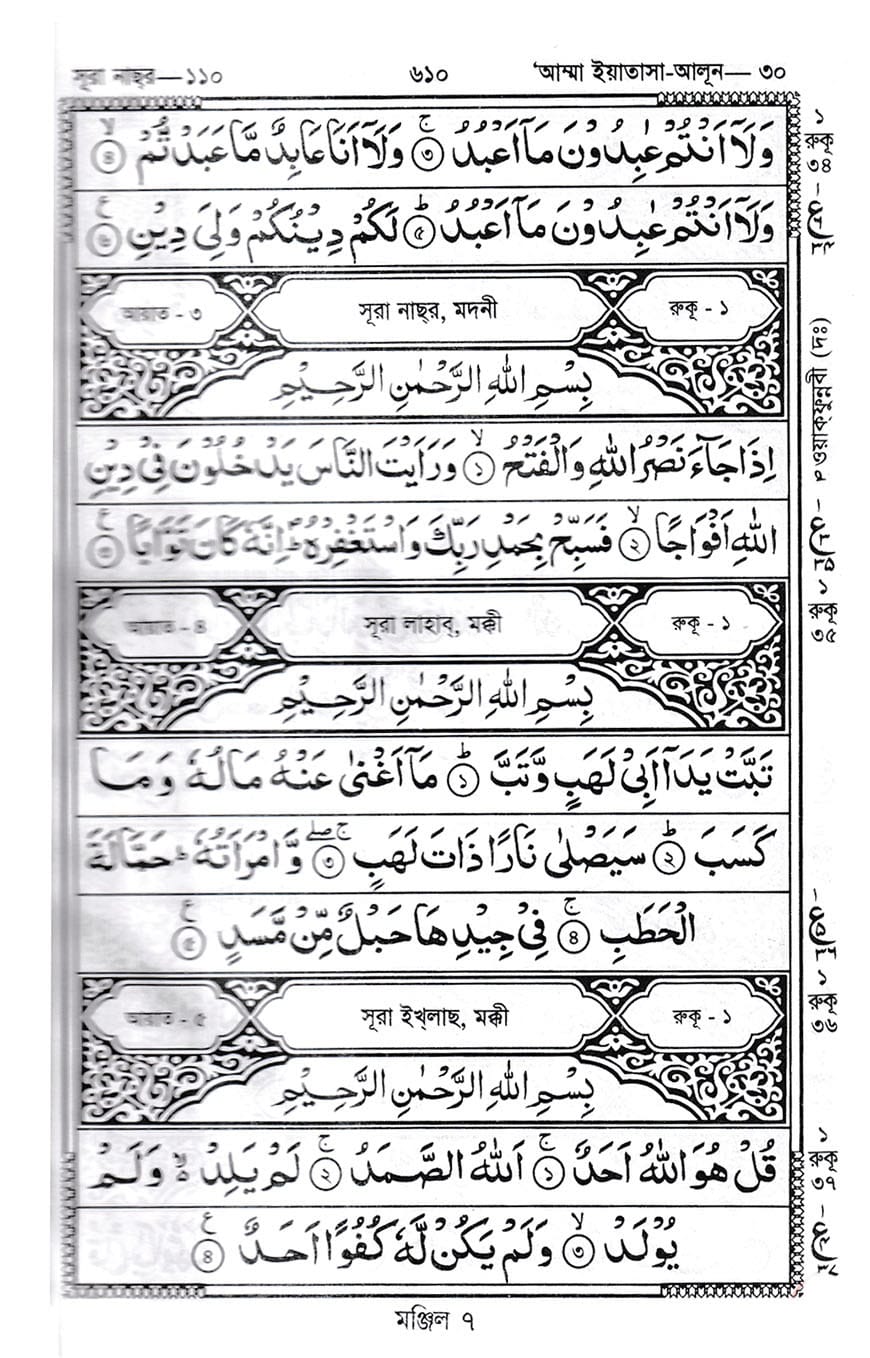 সূরা নাছর—১১০ ৬১০ ‘আম্মা ইয়াতাসা-আলূন— ৩০
وَلَآ اَنْتُمْ عٰبِدُوْنَ مَآ اَعْبُدُ ۚ ③ وَلَآ اَنَا عَابِدٌ مَّا عَبَدْتُّمْ ۙ ④
وَلَآ اَنْتُمْ عٰبِدُوْنَ مَآ اَعْبُدُ ؕ ⑤ لَكُمْ دِيْنُكُمْ وَلِيَ دِيْنِ ⑥
আয়াত - ৩ সূরা নাছ্‌র, মদনী রুকূ - ১
بِسْمِ اللهِ الرَّحْمٰنِ الرَّحِيْمِ
اِذَا جَآءَ نَصْرُ اللهِ وَالْفَتْحُ ۙ ① وَرَاَيْتَ النَّاسَ يَدْخُلُوْنَ فِيْ دِيْنِ
اللهِ اَفْوَاجًا ۙ ② فَسَبِّحْ بِحَمْدِ رَبِّكَ وَاسْتَغْفِرْهُ ؕ اِنَّهٗ كَانَ تَوَّابًا ③
আয়াত - ৪ সূরা লাহাব্, মক্কী রুকূ - ১
بِسْمِ اللهِ الرَّحْمٰنِ الرَّحِيْمِ
تَبَّتْ يَدَآ اَبِيْ لَهَبٍ وَّتَبَّ ؕ ① مَآ اَغْنٰى عَنْهُ مَالُهٗ وَمَا
كَسَبَ ؕ ② سَيَصْلٰى نَارًا ذَاتَ لَهَبٍ ③ وَّامْرَاَتُهٗ ؕ حَمَّالَةَ
الْحَطَبِ ۚ ④ فِيْ جِيْدِهَا حَبْلٌ مِّنْ مَّسَدٍ ⑤
আয়াত - ৫ সূরা ইখ্‌লাছ, মক্কী রুকূ - ১
بِسْمِ اللهِ الرَّحْمٰنِ الرَّحِيْمِ
قُلْ هُوَ اللهُ اَحَدٌ ۚ ① اَللهُ الصَّمَدُ ۚ ② لَمْ يَلِدْ ۙ وَلَمْ
يُوْلَدْ ۙ ③ وَلَمْ يَكُنْ لَّهٗ كُفُوًا اَحَدٌ ④
১
রুকূ
৩৪
ওয়াক্‌ফুন্নবী (দঃ)
১
রুকূ
৩৫
১
রুকূ
৩৬
১
রুকূ
৩৭
মঞ্জিল ৭